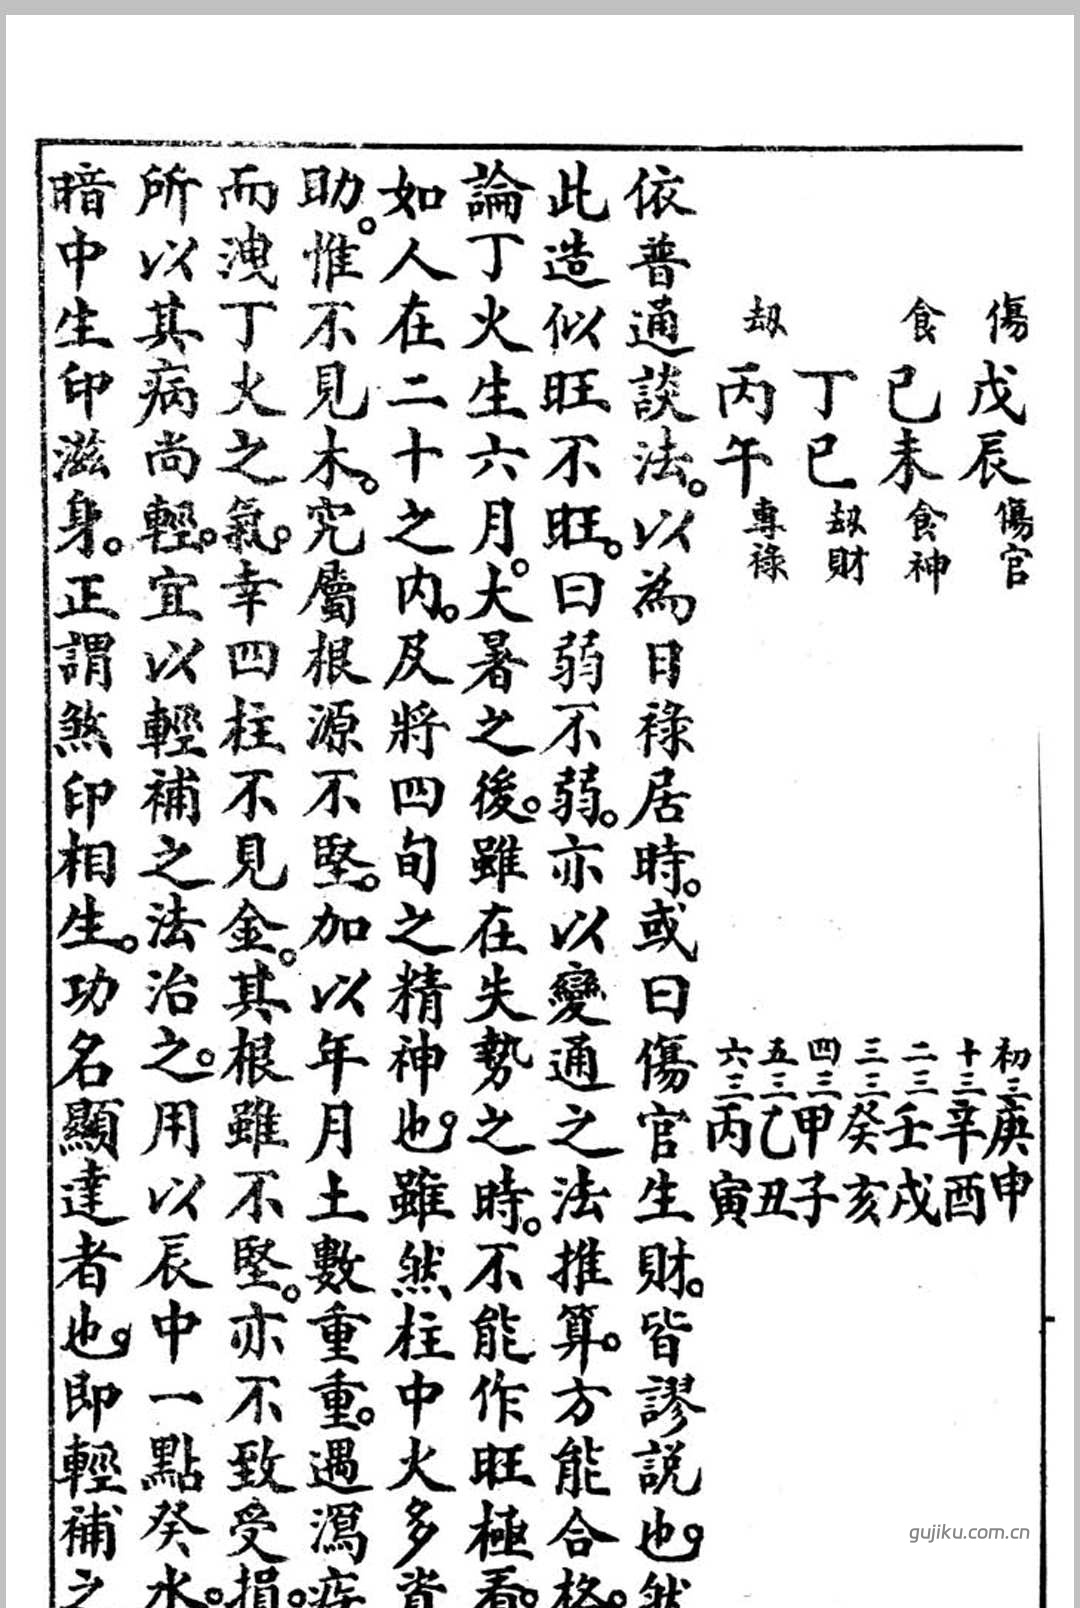 傷 戊辰 傷官
食 己未 食神
丁巳 劫財
劫 丙午 專祿
初三 庚申
十三 辛酉
二三 壬戌
三三 癸亥
四三 甲子
五三 乙丑
六三 丙寅
依普通談法。以為日祿居時。或曰傷官生財。皆謬說也。然
此造似旺不旺。曰弱不弱。亦以變通之法推算。方能合格。
論丁火生六月。大暑之後。雖在失勢之時。不能作旺極看。
如人在二十之內。及將四旬之精神也。雖然柱中火多資
助。惟不見木。究屬根源不堅。加以年月土數重重。遇瀉疾
而洩丁火之氣。幸四柱不見金。其根雖不堅。亦不致受損。
所以其病尚輕。宜以輕補之法治之。用以辰中一點癸水。
暗中生印滋身。正謂煞印相生。功名顯達者也。即輕補之
gujiku.com.cn